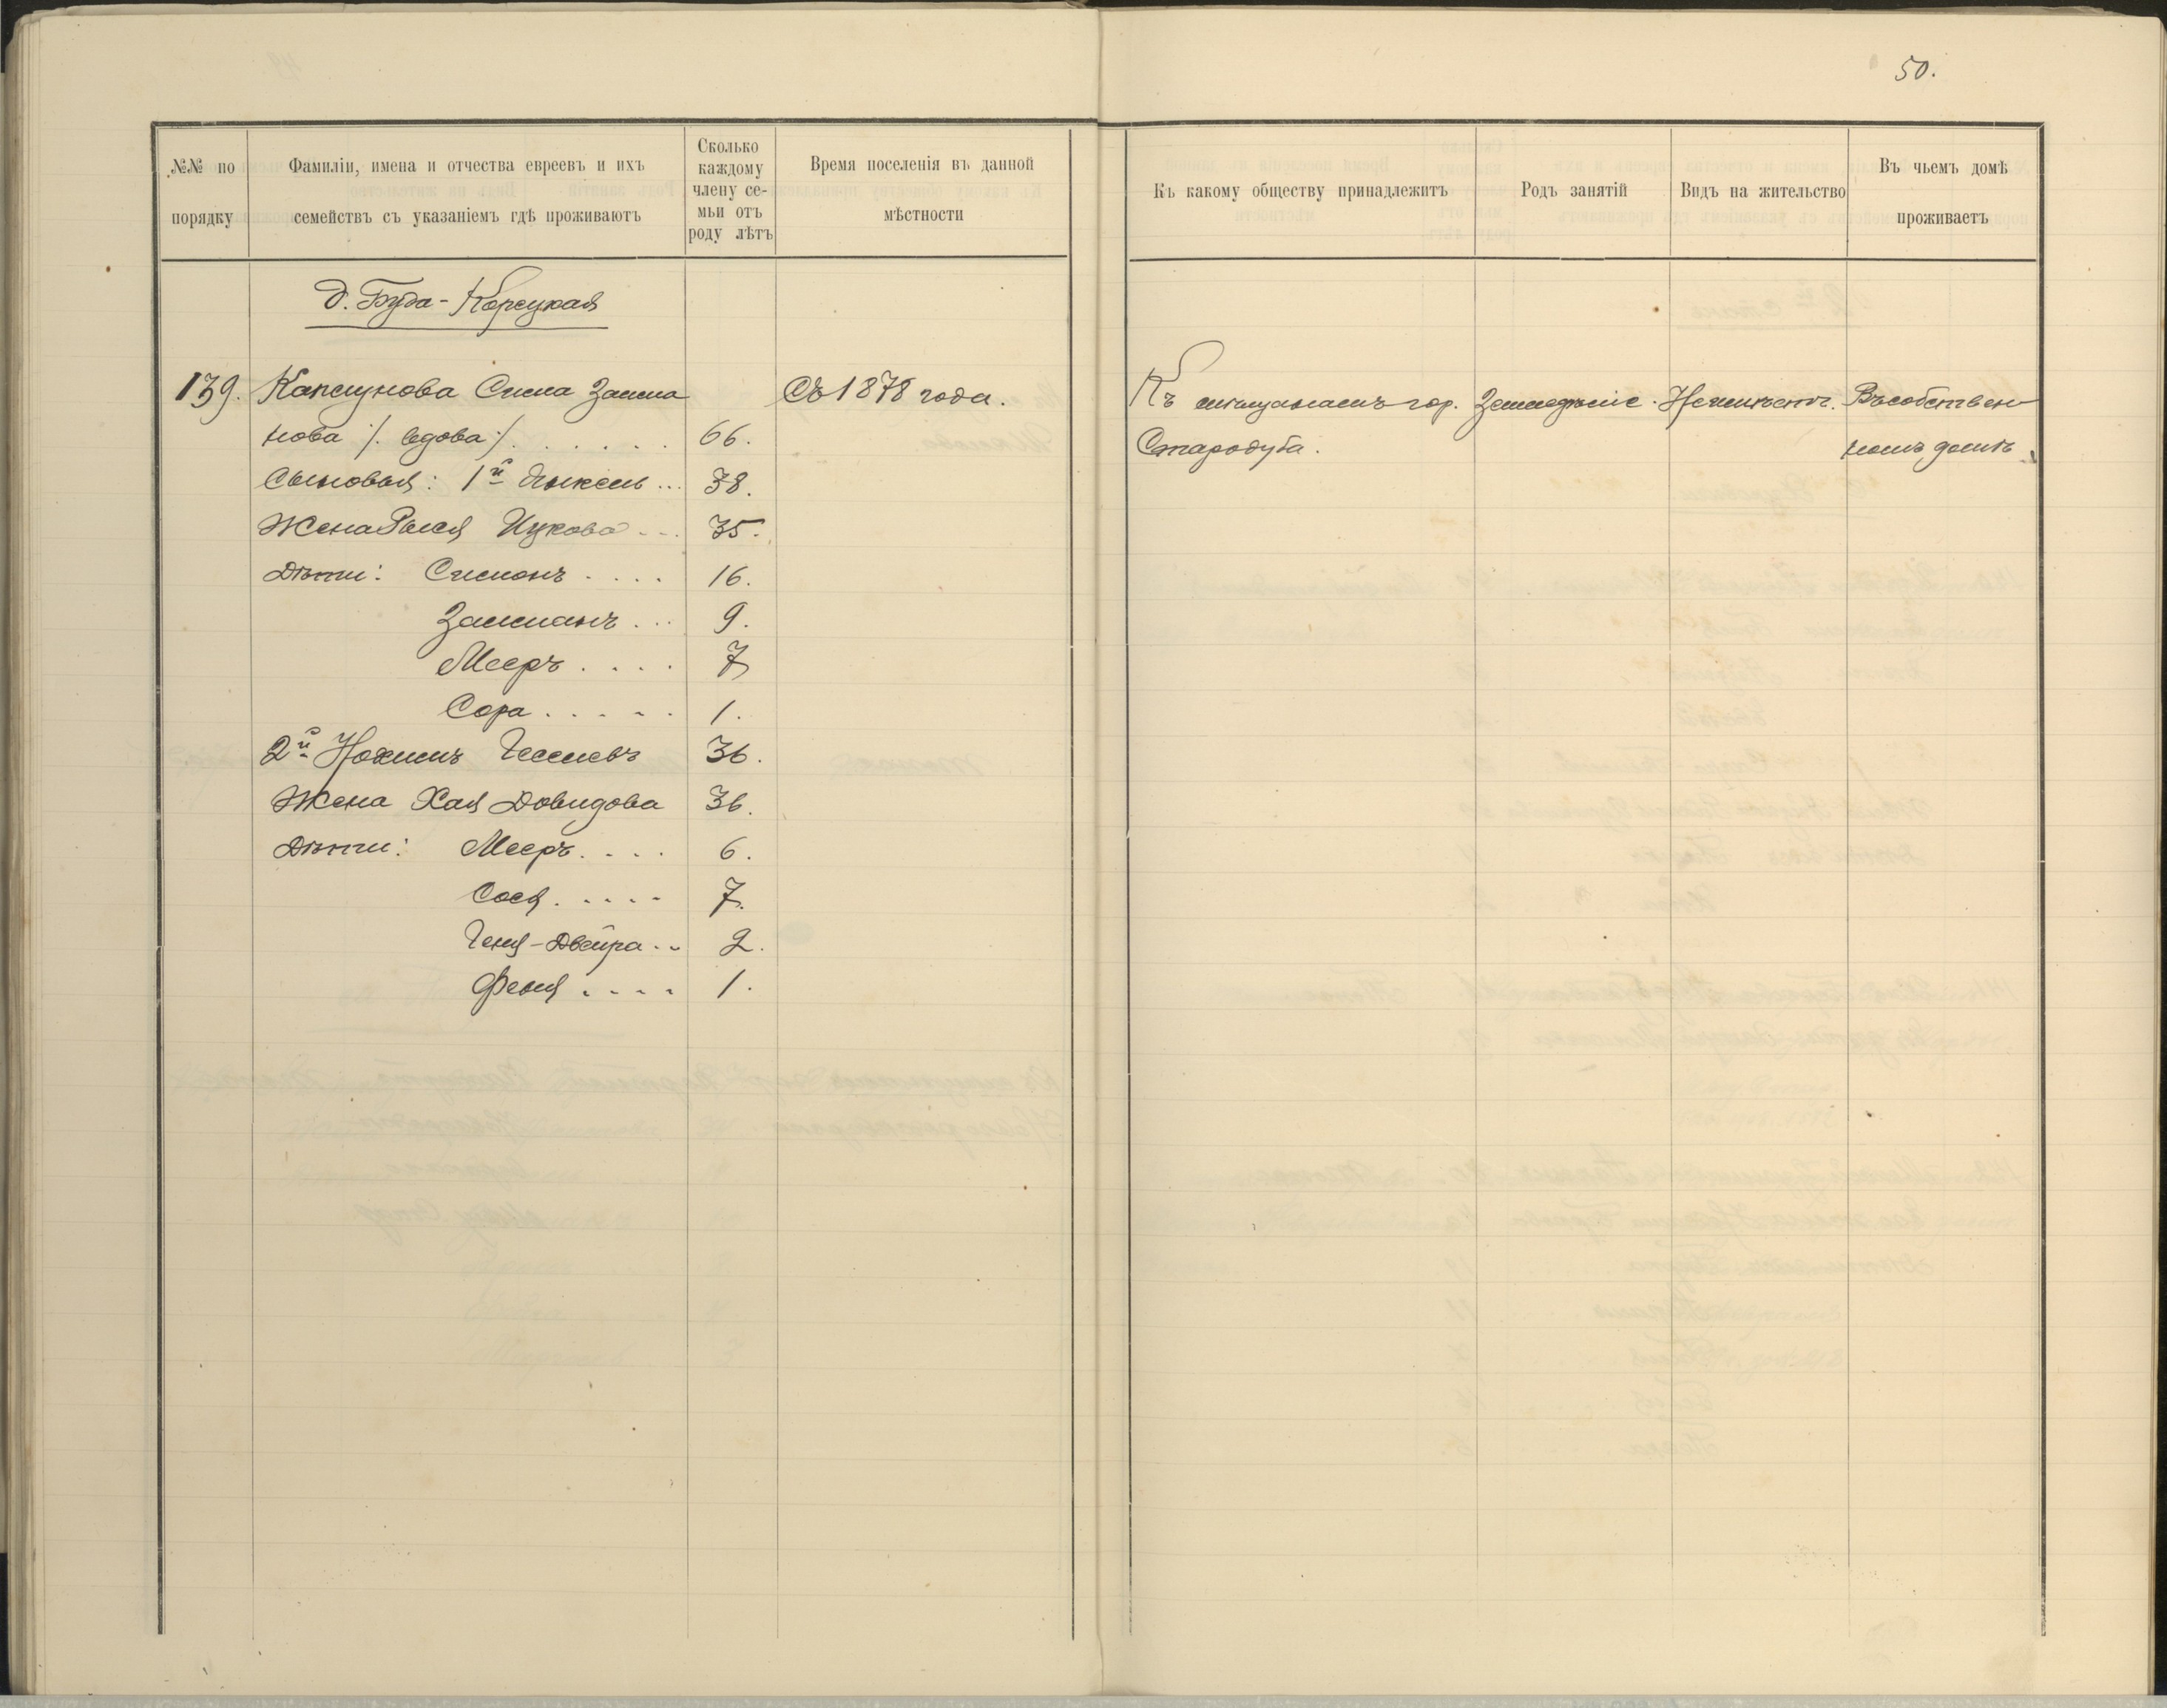 50.
№№ по порядку
Фамиліи, имена и отчества евреевъ и ихъ семействъ съ указаніемъ гдѣ проживаютъ
Сколько каждому члену се-мьи отъ роду лѣтъ
Время поселенія въ данной мѣстности
Къ какому обществу принадлежитъ
Родъ занятій
Видъ на жительство
Въ чьемъ домѣ проживаетъ
д. Буда-Корецкая
139. Капкунова Сима Залма Съ 1878 года. Къ мѣщанамъ гор. Земледѣліе. Неимѣетъ. Въ собствен
нова /. вдова ./ . . . . . . 66. Стародуба. номъ домѣ.
Сыновья: 1й ... 38.
Жена Рися Ицкова ... 35.
Дѣти: Симонъ . . . . 16.
Залманъ . . . 9.
Мееръ . . . . 7
Сора . . . . . 1.
2й Нохимъ Геселевъ 36.
Жена Хая Довидова 36.
Дѣти: Мееръ . . . . 6.
Сося . . . . . 7.
Геня-Двейра .. 2.
Феня . . . . 1.